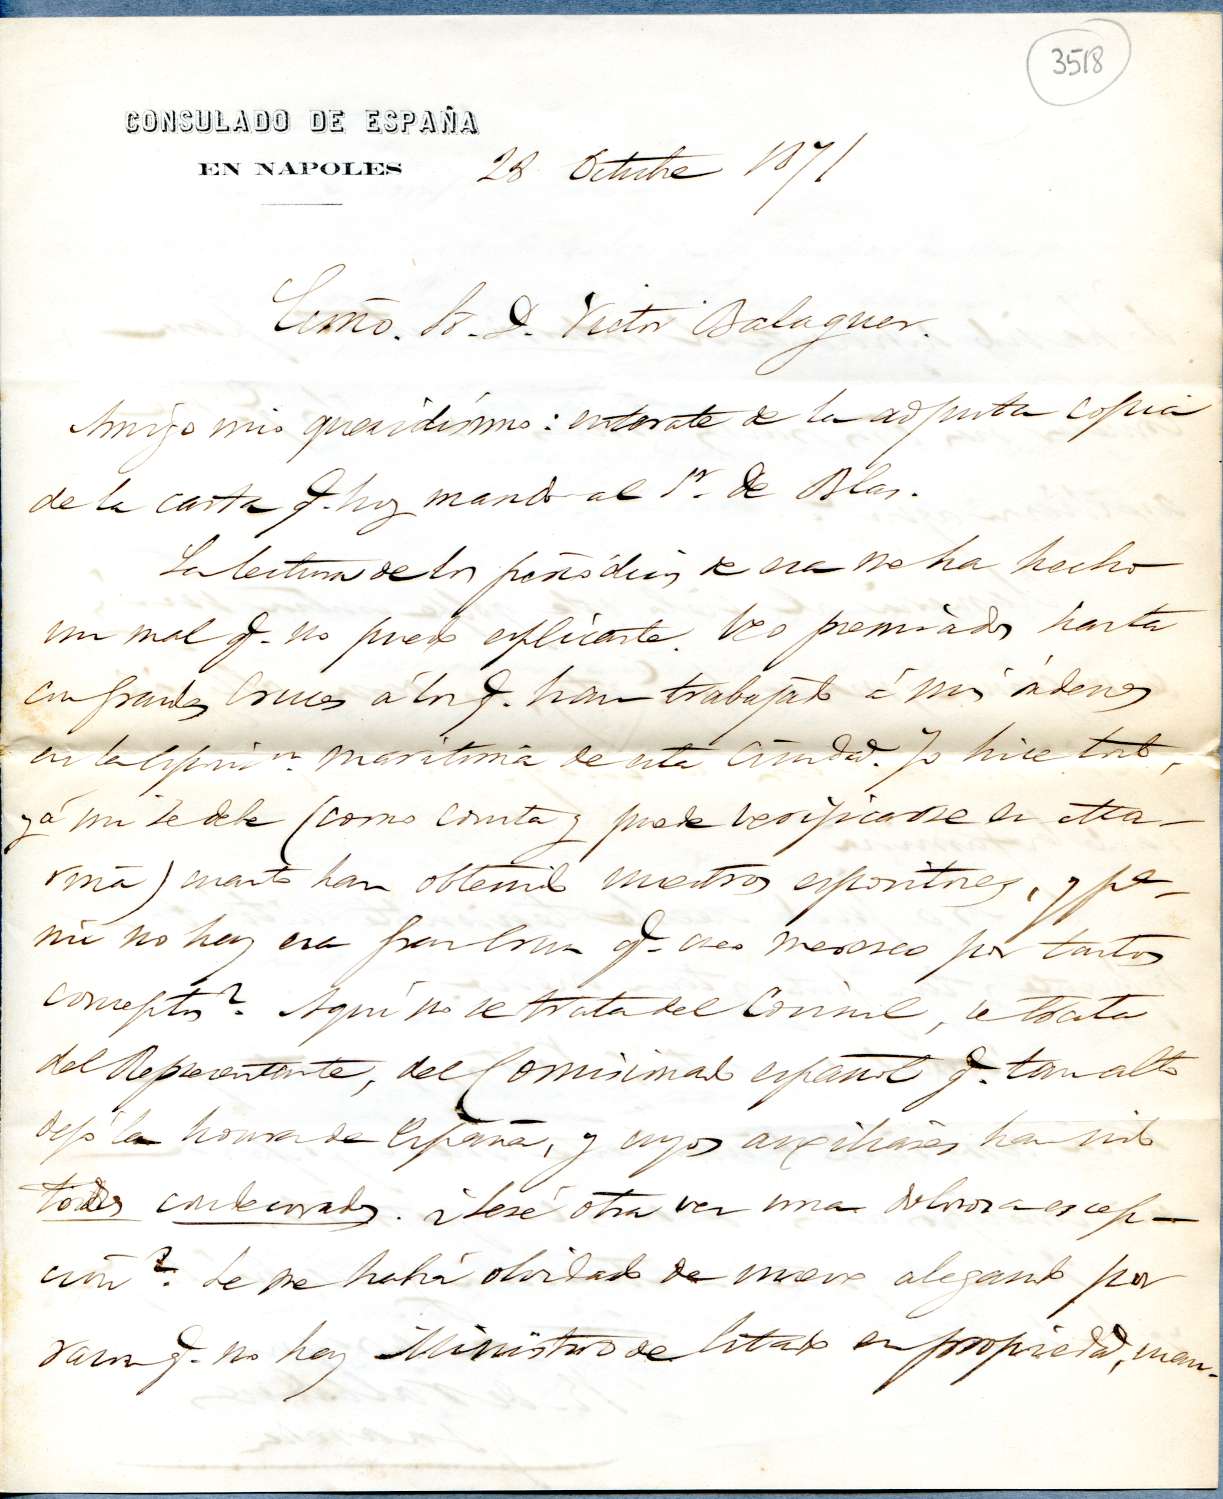 3518
CONSULADO DE ESPAÑA
EN NAPOLES
28 Octubre 1871
Exmo. Sr. D. Victor Balaguer.
Amigo mio queridísimo: enterate de la adjunta copia
de la carta q. hoy mando al Sr. de Blas.
La lectura de los periódicos de esa me ha hecho
un mal q. no puedo esplicarte. Veo premiados hasta
con grandes Cruces á los q. han trabajado á mis órdenes
en la esposicn. maritima de esta Ciudad. Yo hice todo,
y á mi se debe (como consta y puede verificarse en Ma-
rina) cuanto han obtenido nuestros espositores, y pa-
mi no hay esa gran Cruz q. creo merezco por tantos
conceptos?. Aquí no se trata del Consul, se trata
del Representante, del Comisionado español q. tan alto
dejó la honra de España, y cuyos auxiliares han sido
todos condecorados. ¿Seré otra vez una dolorosa escep-
ción?. Se me habrá olvidado de nuevo alegando por
razon q. no hay Ministro de Estado en propiedad, man-